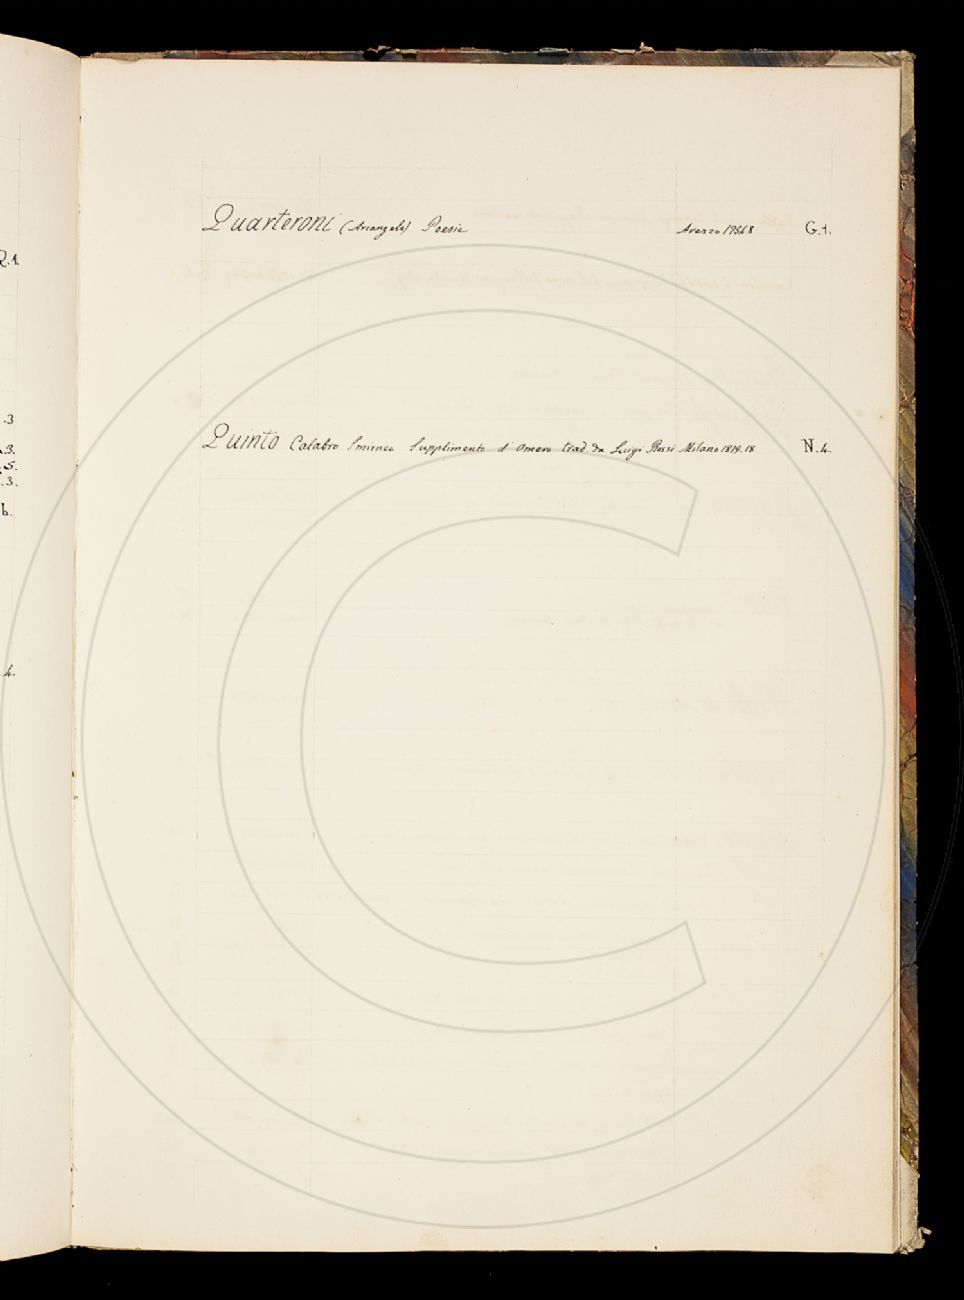 Quarteroni (Arcangelo) Poesie Arezzo G.1.
Quinto Calabro Smirneo Supplimento d'Omero trad. da Luigi Rossi Milano 1819.18 N.4.
Q.1
.3
.3.
.5.
.3.
b.
4.